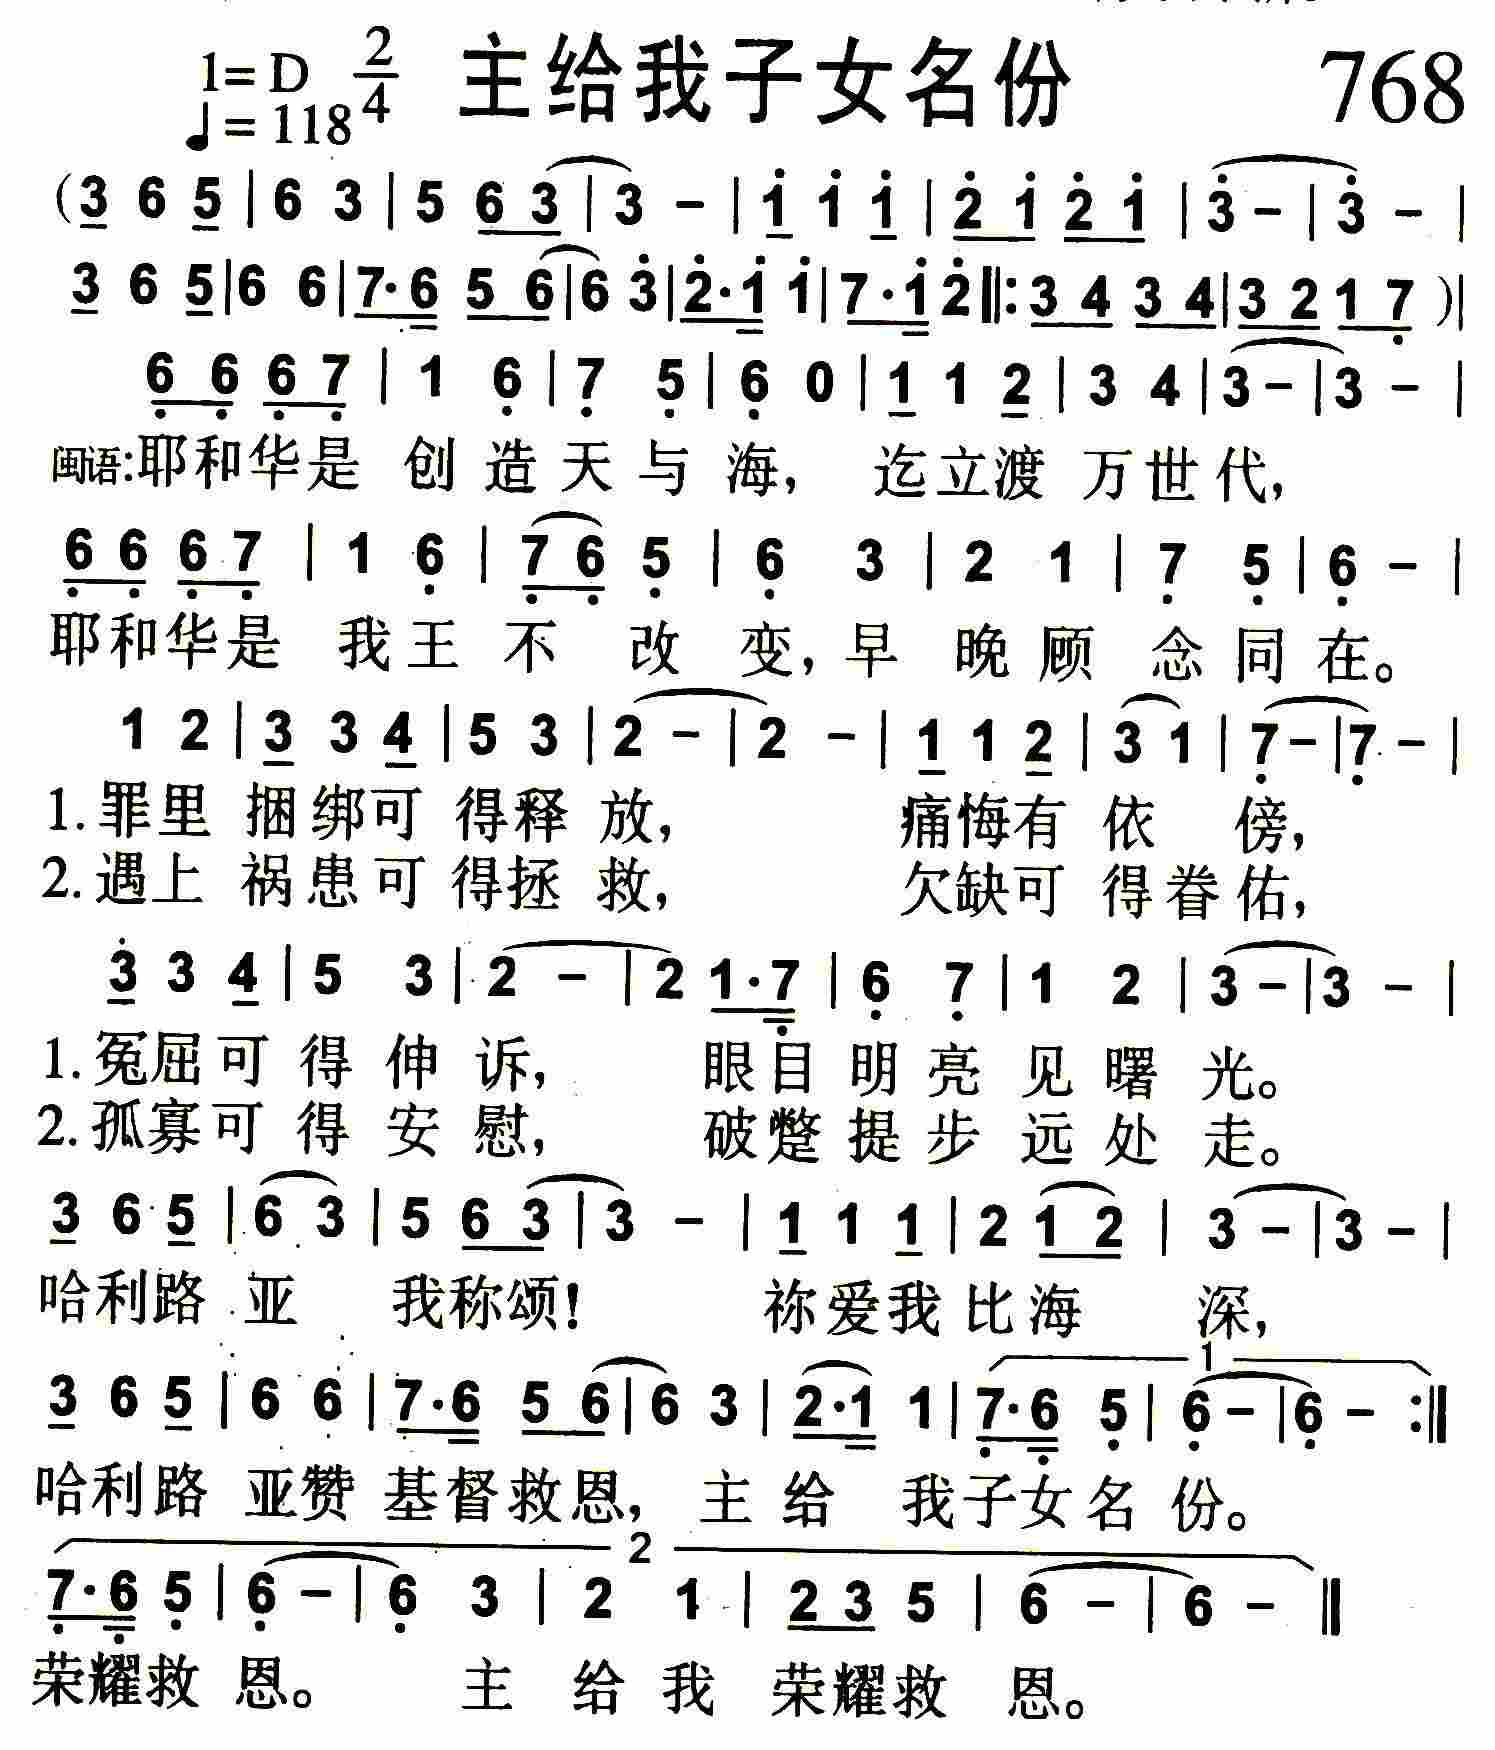 1=D 2/4 主给我子女名份 768
♩=118
(3 6 5 | 6 3 | 5 6 3 | 3 - | 1̇ 1̇ 1̇ | 2̇ 1̇ 2̇ 1̇ | 3̇ - | 3̇ - |
3 6 5 | 6 6 | 7·6 5 6 | 6 3̇ | 2̇·1̇ 1̇ | 7·1̇ 2̇ ‖: 3 4 3 4 | 3 2 1 7̣ )|
6̣ 6̣ 6̣ 7̣ | 1 6̣ | 7̣ 5̣ | 6̣ 0 | 1 1 2 | 3 4 | 3 - | 3 - |
闽语:耶和华是 创造天与海, 迄立渡 万世代,
6̣ 6̣ 6̣ 7̣ | 1 6̣ | 7̣ 6̣ 5̣ | 6̣ 3 | 2 1 | 7̣ 5̣ | 6̣ - |
耶和华是 我王不 改 变, 早 晚顾 念同在。
1 2 | 3 3 4 | 5 3 | 2 - | 2 - | 1 1 2 | 3 1 | 7̣ - | 7̣ - |
1.罪里 捆绑可 得释 放, 痛悔有 依 傍,
2.遇上 祸患可 得拯 救, 欠缺可 得眷佑,
3̇ 3 4 | 5 3 | 2 - | 2 1·7̣ | 6̣ 7̣ | 1 2 | 3 - | 3 - |
1.冤屈可 得 伸 诉, 眼目 明 亮 见 曙 光。
2.孤寡可 得 安 慰, 破蹩 提 步 远 处 走。
3 6 5 | 6 3 | 5 6 3 | 3 - | 1 1 1 | 2 1 2 | 3 - | 3 - |
哈利路 亚 我称颂! 祢爱我 比海 深,
1
3 6 5 | 6 6 | 7·6 5 6 | 6 3 | 2·1 1 | 7̣·6̣ 5̣ | 6̣ - | 6̣ - :‖
哈利路 亚赞 基督救恩, 主 给 我子女名 份。
2
7̣·6̣ 5̣ | 6̣ - | 6̣ 3 | 2 1 | 2 3 5 | 6 - | 6 - ‖
荣耀救 恩。 主 给 我 荣耀救 恩。